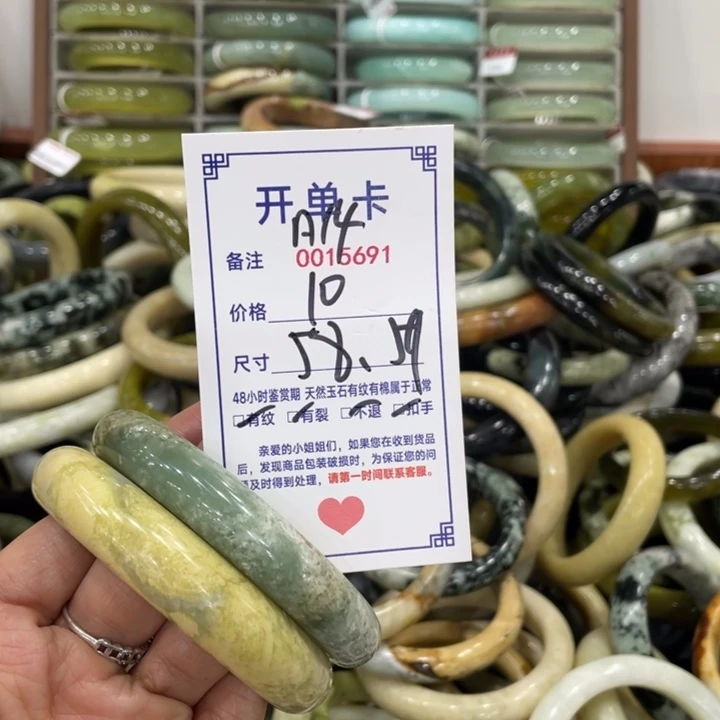 开单卡
A14
备注 0015691
价格 10
尺寸 58、59
48小时鉴赏期 天然玉石有纹有棉属于正常
□有纹 □有裂 □不退 □扣手
亲爱的小姐姐们，如果您在收到货品
后，发现商品包装破损时，为保证您的问
题及时得到处理，请第一时间联系客服。